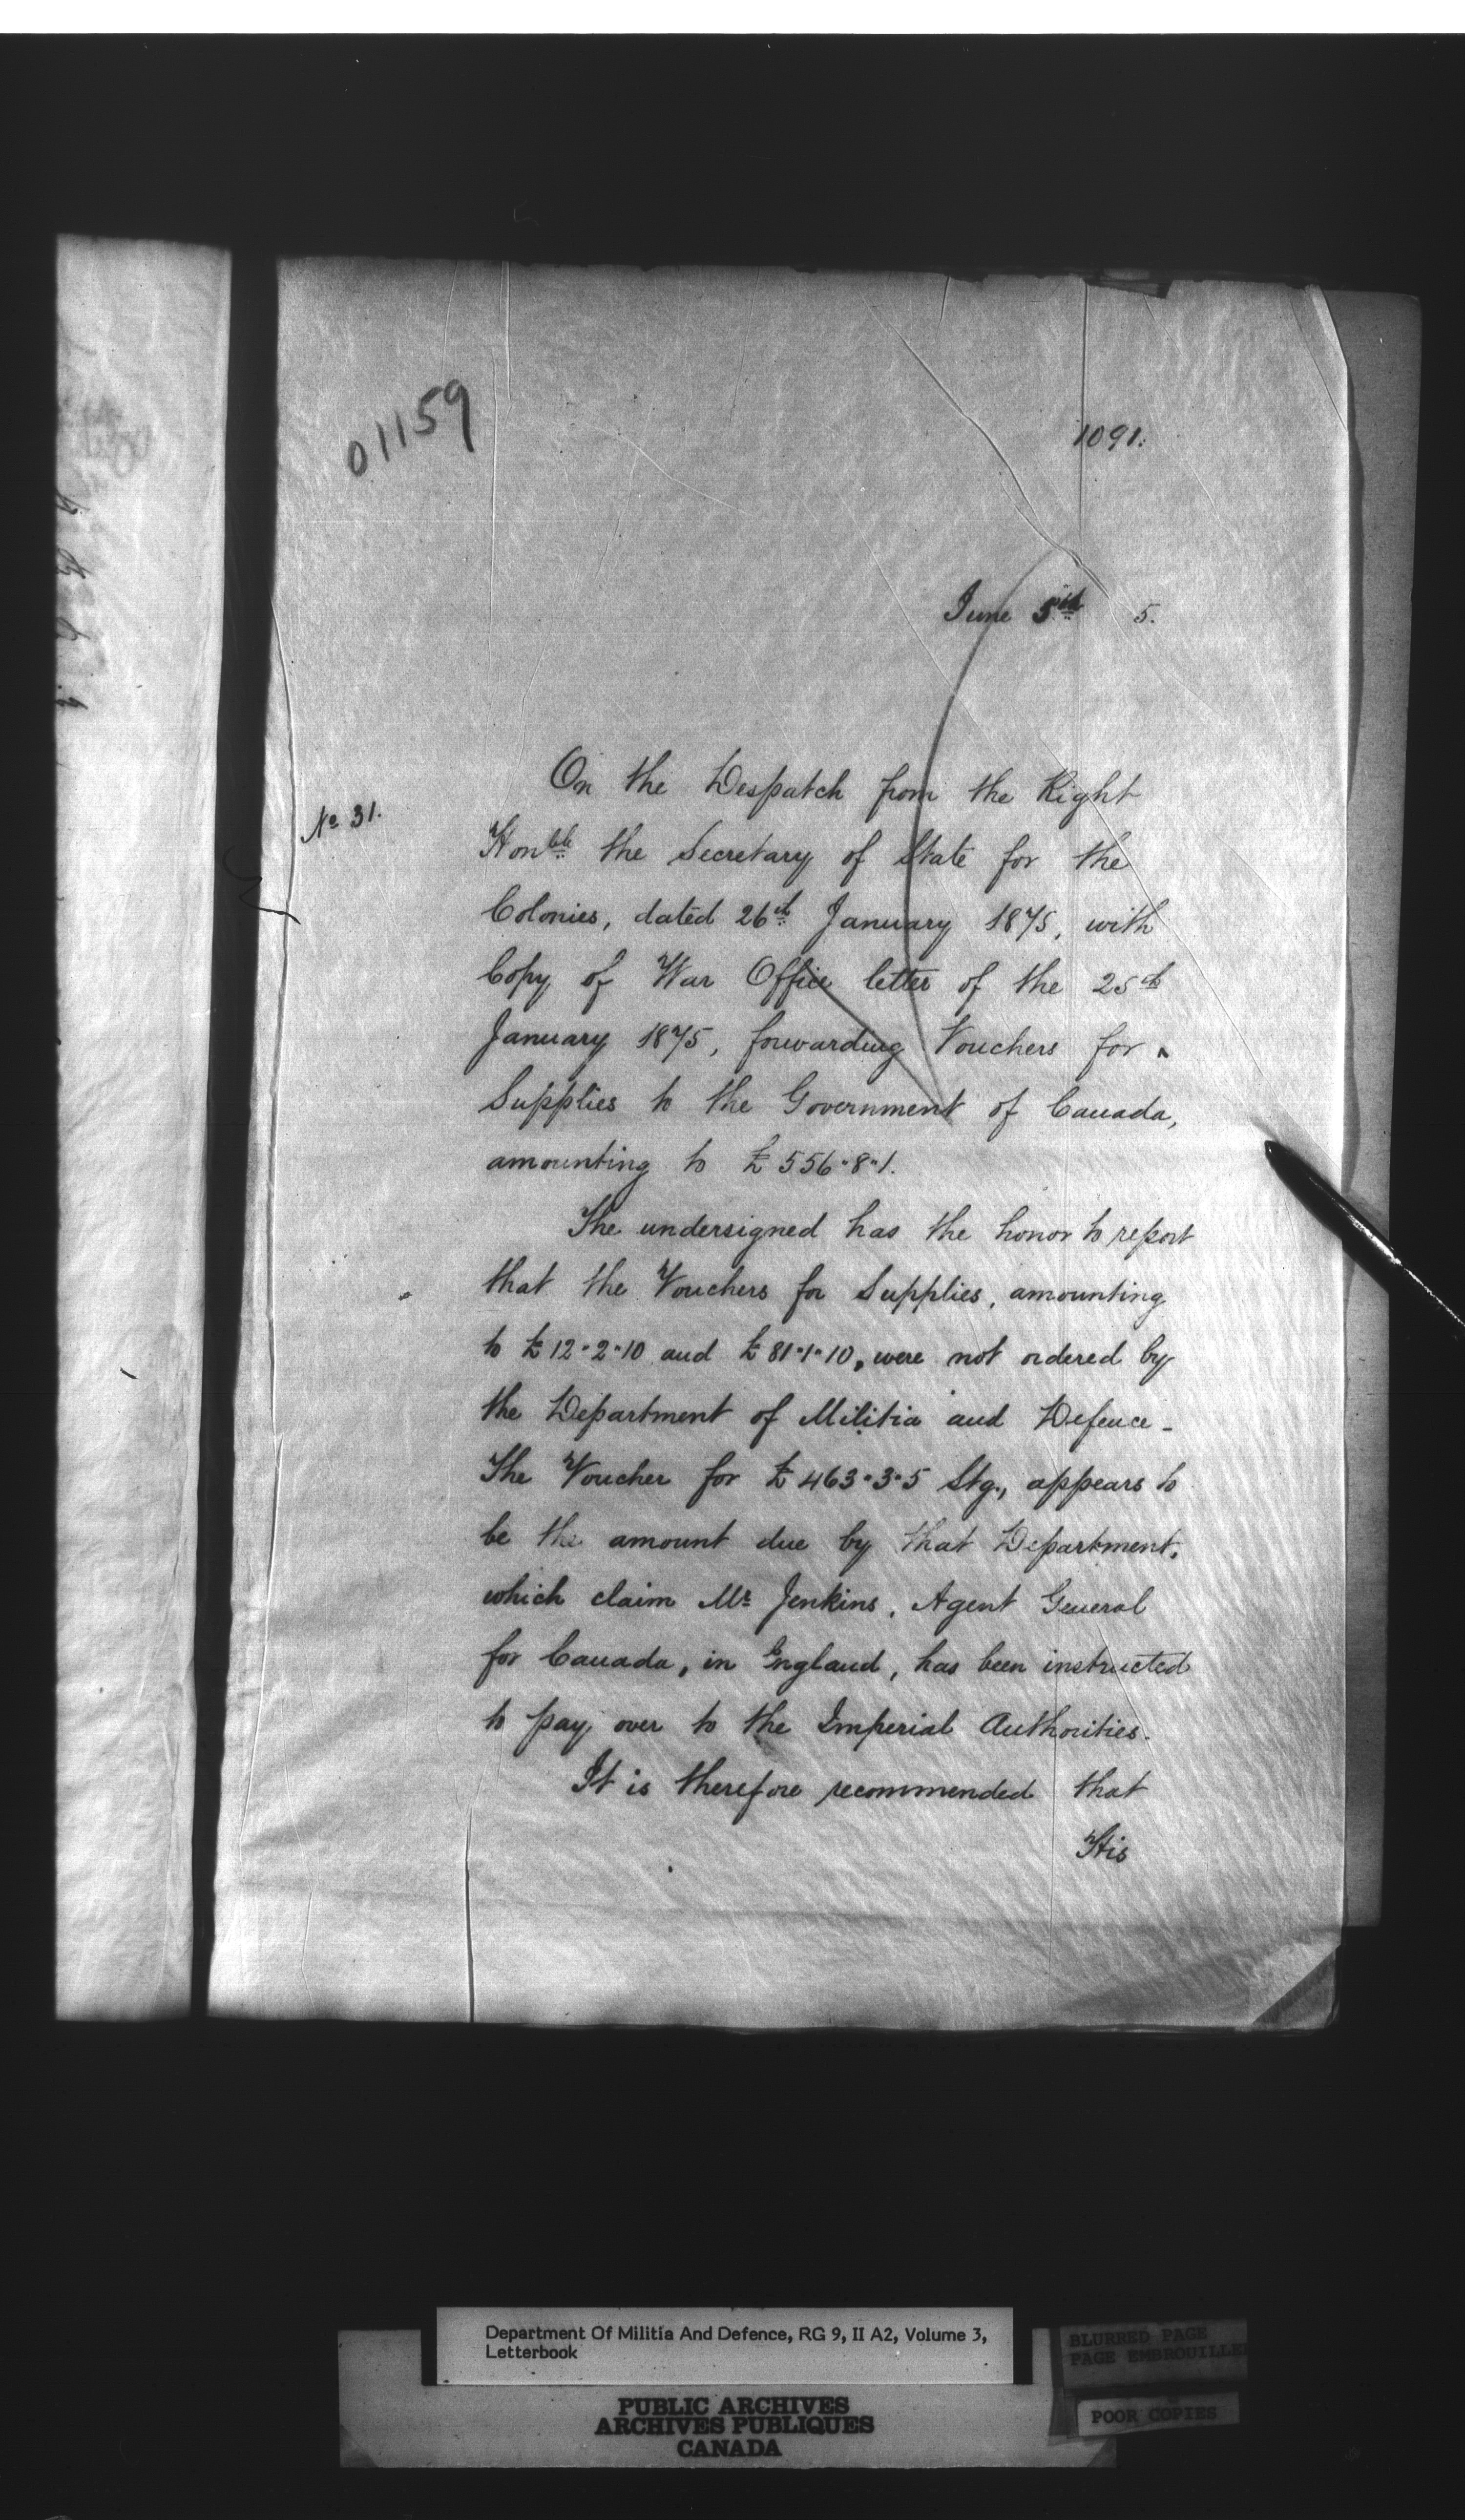 01159
1091.
June 5th 5.
No 31.
On the Despatch from the Right
Honble the Secretary of State for the
Colonies, dated 26th January 1875, with
Copy of War Office letter of the 25th
January 1875, forwarding Vouchers for
Supplies to the Government of Canada,
amounting to £556"8"1.
The undersigned has the honor to report
that the Vouchers for Supplies, amounting
to £12"2"10 and £81"1"10, were not ordered by
the Department of Militia and Defence -
The Voucher for £463"3"5 Stg., appears to
be the amount due by that Department,
which claim Mr Jenkins, Agent General
for Canada, in England, has been instructed
to pay over to the Imperial Authorities.
It is therefore recommended that
His
Department Of Militia And Defence, RG 9, II A2, Volume 3,
Letterbook
BLURRED PAGE
PAGE EMBROUILLEE
POOR COPIES
PUBLIC ARCHIVES
ARCHIVES PUBLIQUES
CANADA